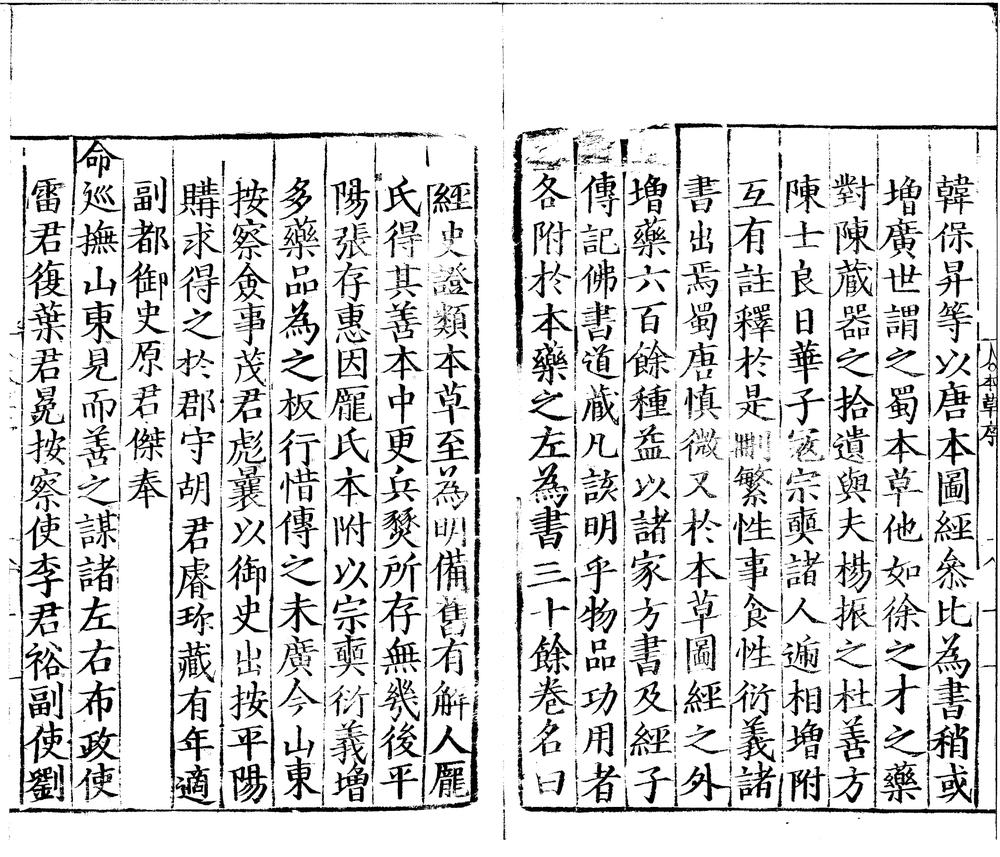 韓保昇等以唐本圖經叅比為書稍或
增廣世謂之蜀本草他如徐之才之藥
對陳蔵器之拾遺與夫楊振之杜善方
陳士良日華子寇宗奭諸人遍相增附
互有註釋於是刪繁性事食性衍義諸
書出焉蜀唐慎微又於本草圖經之外
增藥六百餘種益以諸家方書及經子
傳記佛書道蔵凡該明乎物品功用者
各附於本藥之左為書三十餘卷名曰
經史證類本草至為明備舊有解人龐
氏得其善本中更兵燹所存無幾後平
陽張存惠因龐氏本附以宗奭衍義增
多藥品為之板行惜傳之未廣今山東
按察僉事茂君彪曩以御史出按平陽
購求得之於郡守胡君睿珎藏有年適
副都御史原君傑奉
命巡撫山東見而善之謀諸左右布政使
雷君復葉君冕按察使李君裕副使劉
本草序